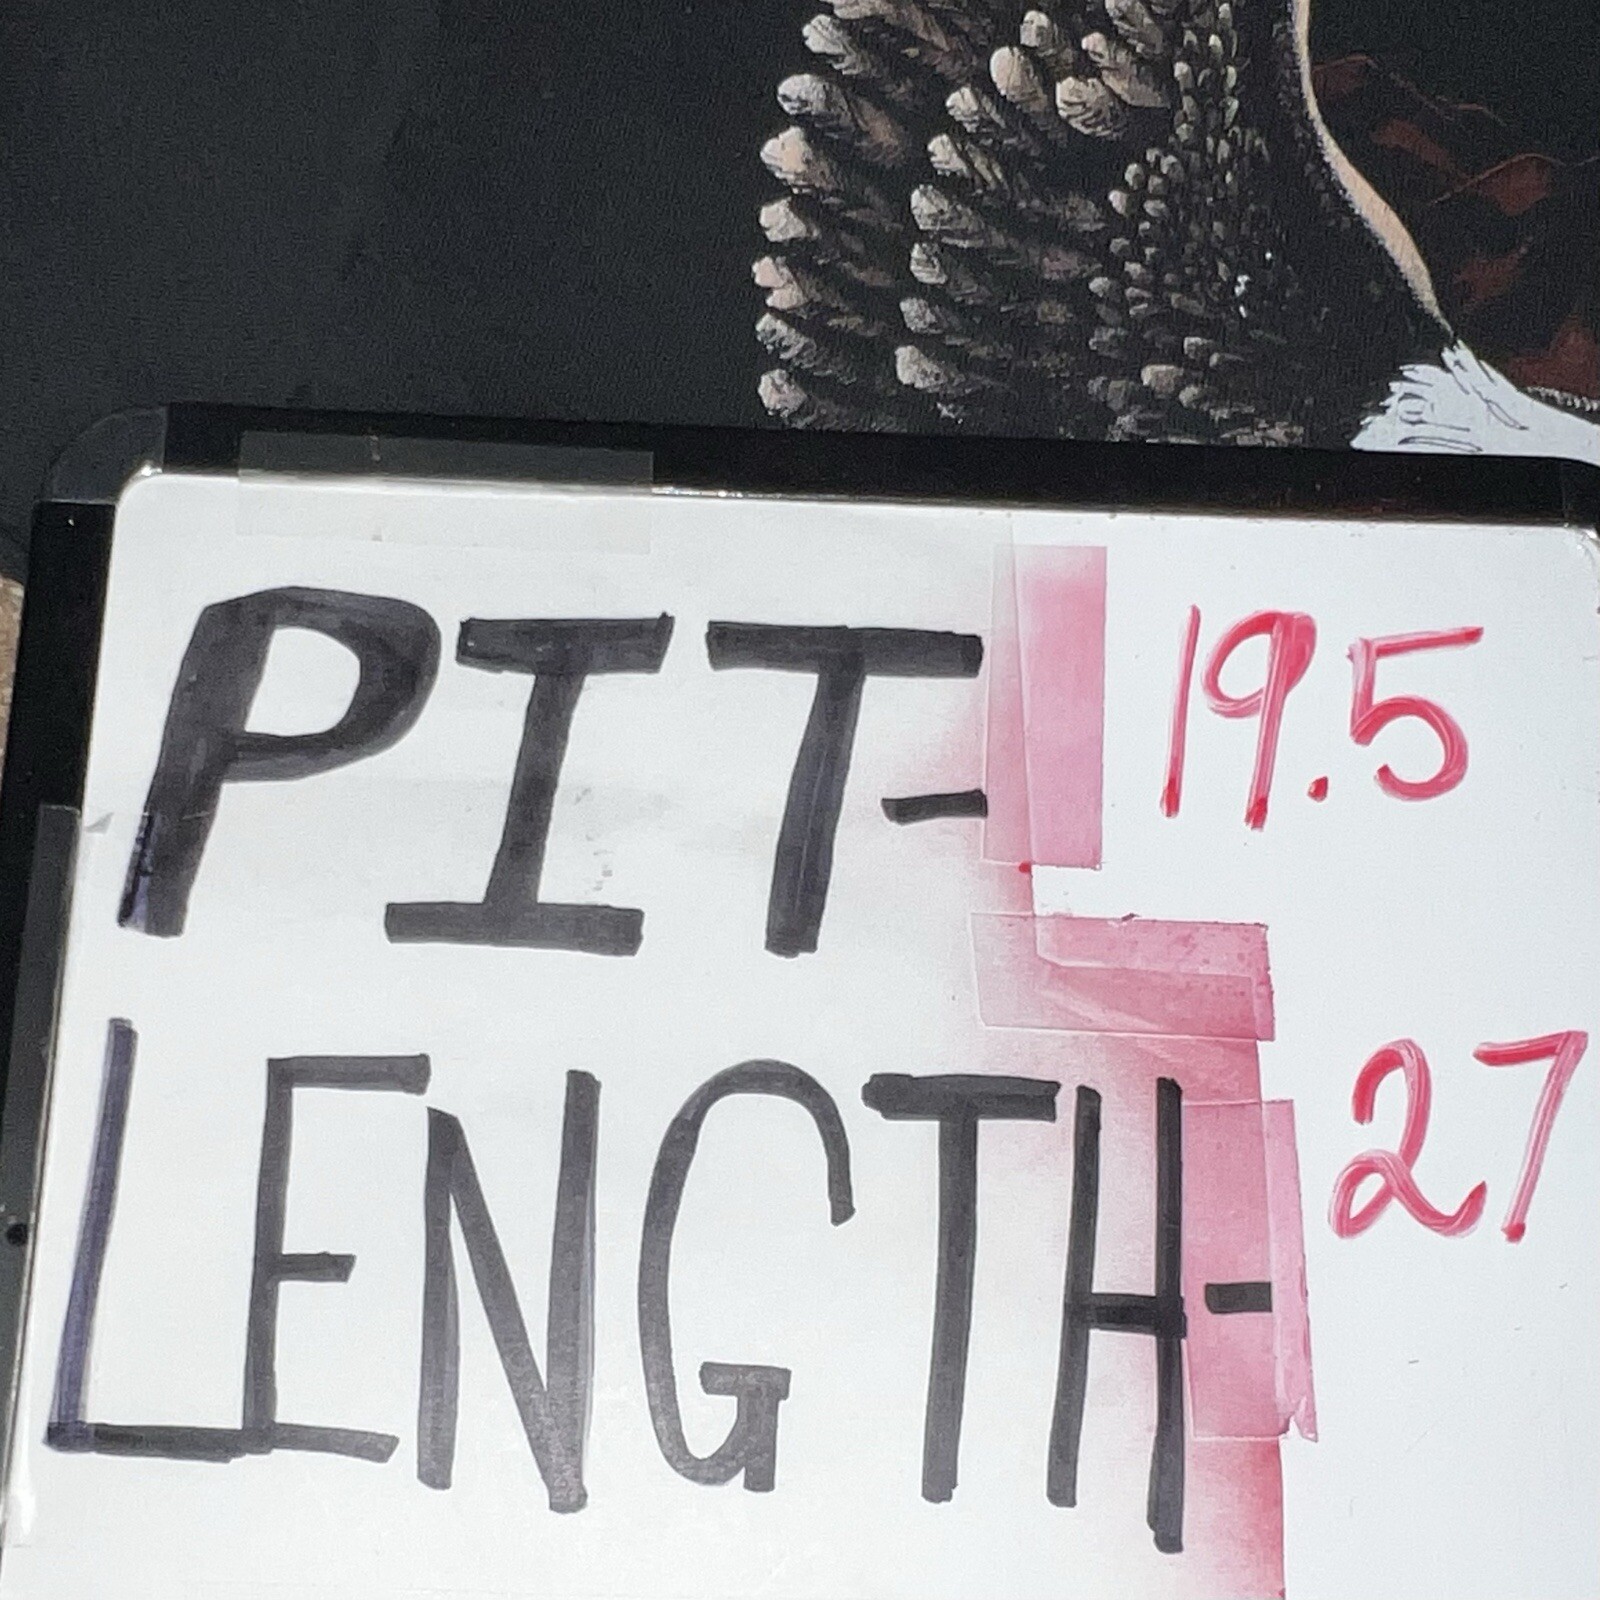 PIT- 19.5
LENGTH- 27